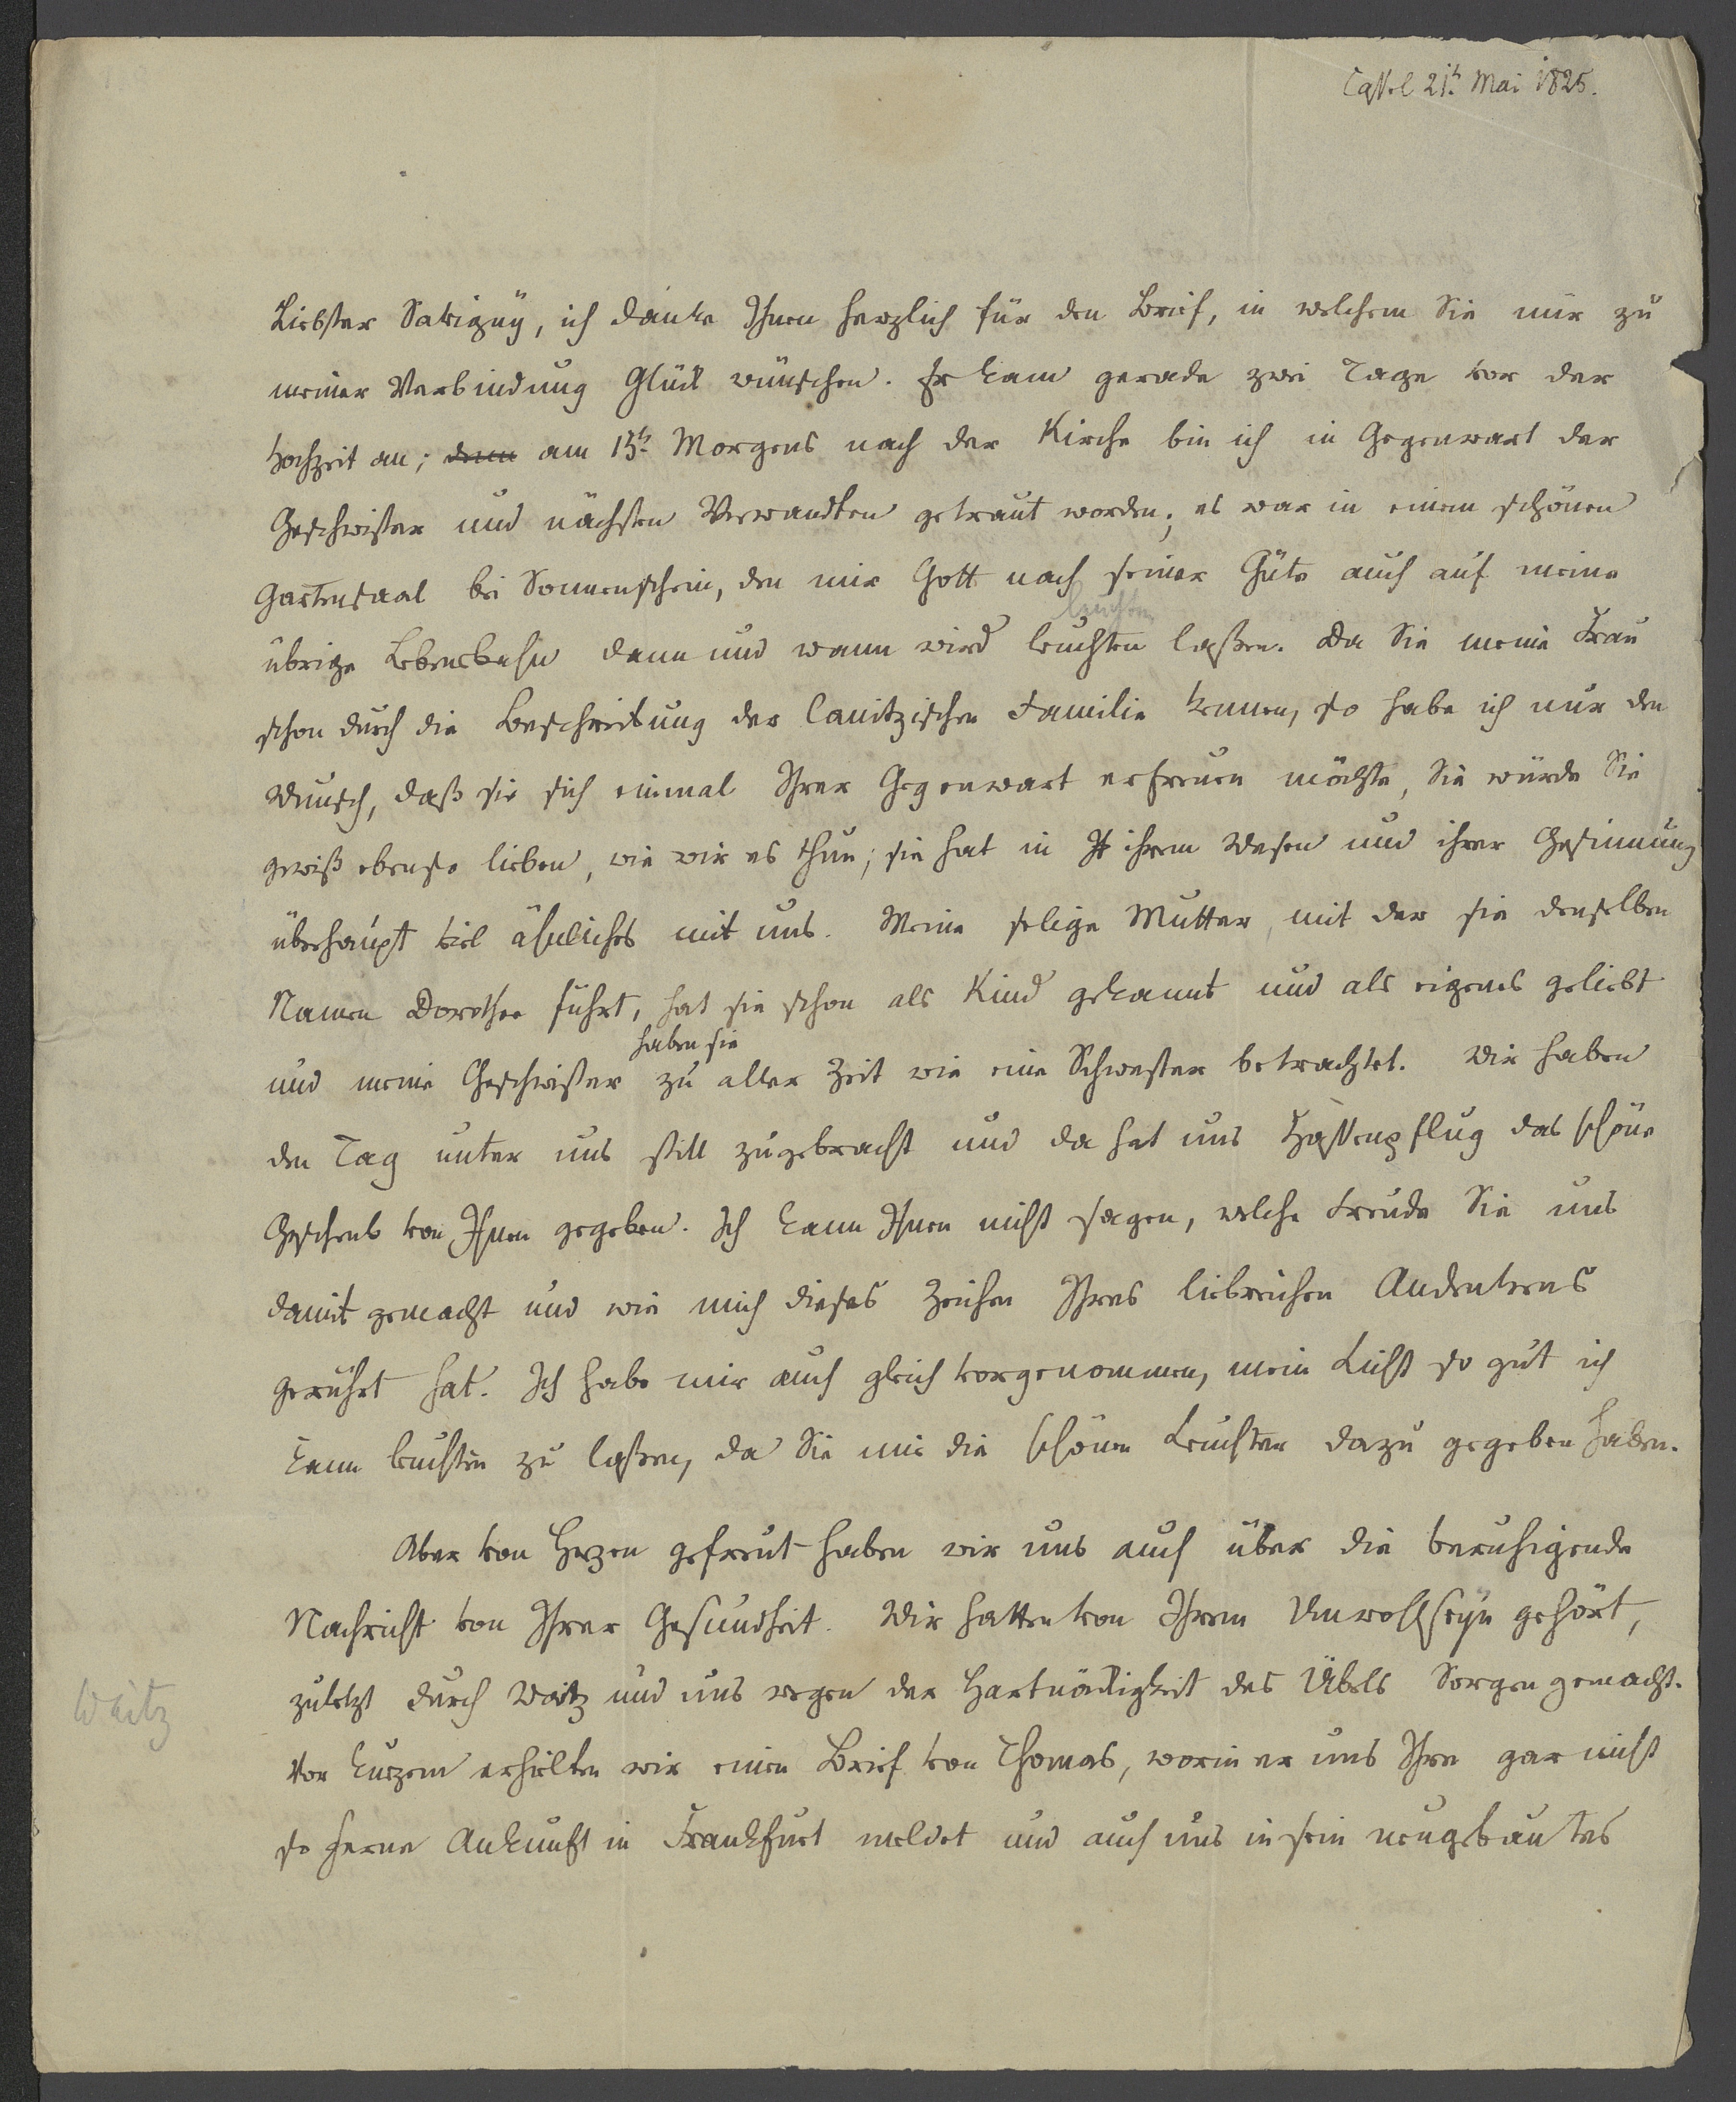 Cassel 21t. Mai 1825.
Liebster Savigny, ich danke Ihnen herzlich für den Brief, in welchem Sie mir zu
meiner Verbindung Glück wünschen. Er kam gerade zwei Tage vor der
Hochzeit an; denn am 15t. Morgens nach der Kirche bin ich in Gegenwart der
Geschwister und nächsten Verwandten getraut worden; es war in einem schönen
Gartensaal bei Sonnenschein, den mir Gott nach seiner Güte auch auf meine
leuchten
übrige Lebensbahn dann und wann wird leuchten laßen. Da Sie meine Frau
schon durch die Beschreibung der Canitzischen Familie kennen, so habe ich nur den
Wunsch, daß sie sich einmal Ihrer Gegenwart erfreuen möchte, Sie würde Sie
gewiß ebenso lieben, wie wir es thun; sie hat in Ih ihrem Wesen und ihrer Gesinnung
überhaupt viel ähnliches mit uns. Meine selige Mutter, mit der sie denselben
Namen Dorothee führt, hat sie schon als Kind gekannt und als eigenes geliebt
haben sie
und meine Geschwister zu aller Zeit wie eine Schwester betrachtet. Wir haben
den Tag unter uns still zugebracht und da hat uns Hassenpflug das schöne
Geschenk von Ihnen gegeben. Ich kann Ihnen nicht sagen, welche Freude Sie uns
damit gemacht und wie mich dieses Zeichen Ihres liebreichen Andenkens
gerührt hat. Ich habe mir auch gleich vorgenommen, mein Licht so gut ich
kann leuchten zu laßen, da Sie mir die schönen Leuchter dazu gegeben haben.
Aber von Herzen gefreut haben wir uns auch über die beruhigende
Nachricht von Ihrer Gesundheit. Wir hatten von Ihrem Unwohlseyn gehört,
Waitz
zuletzt durch Waitz und uns wegen der Hartnäckigkeit des Übels Sorgen gemacht.
Vor kurzem erhielten wir einen Brief von Thomas, worin er uns Ihre gar nicht
so ferne Ankunft in Frankfurt meldet und auch uns in sein neugebautes